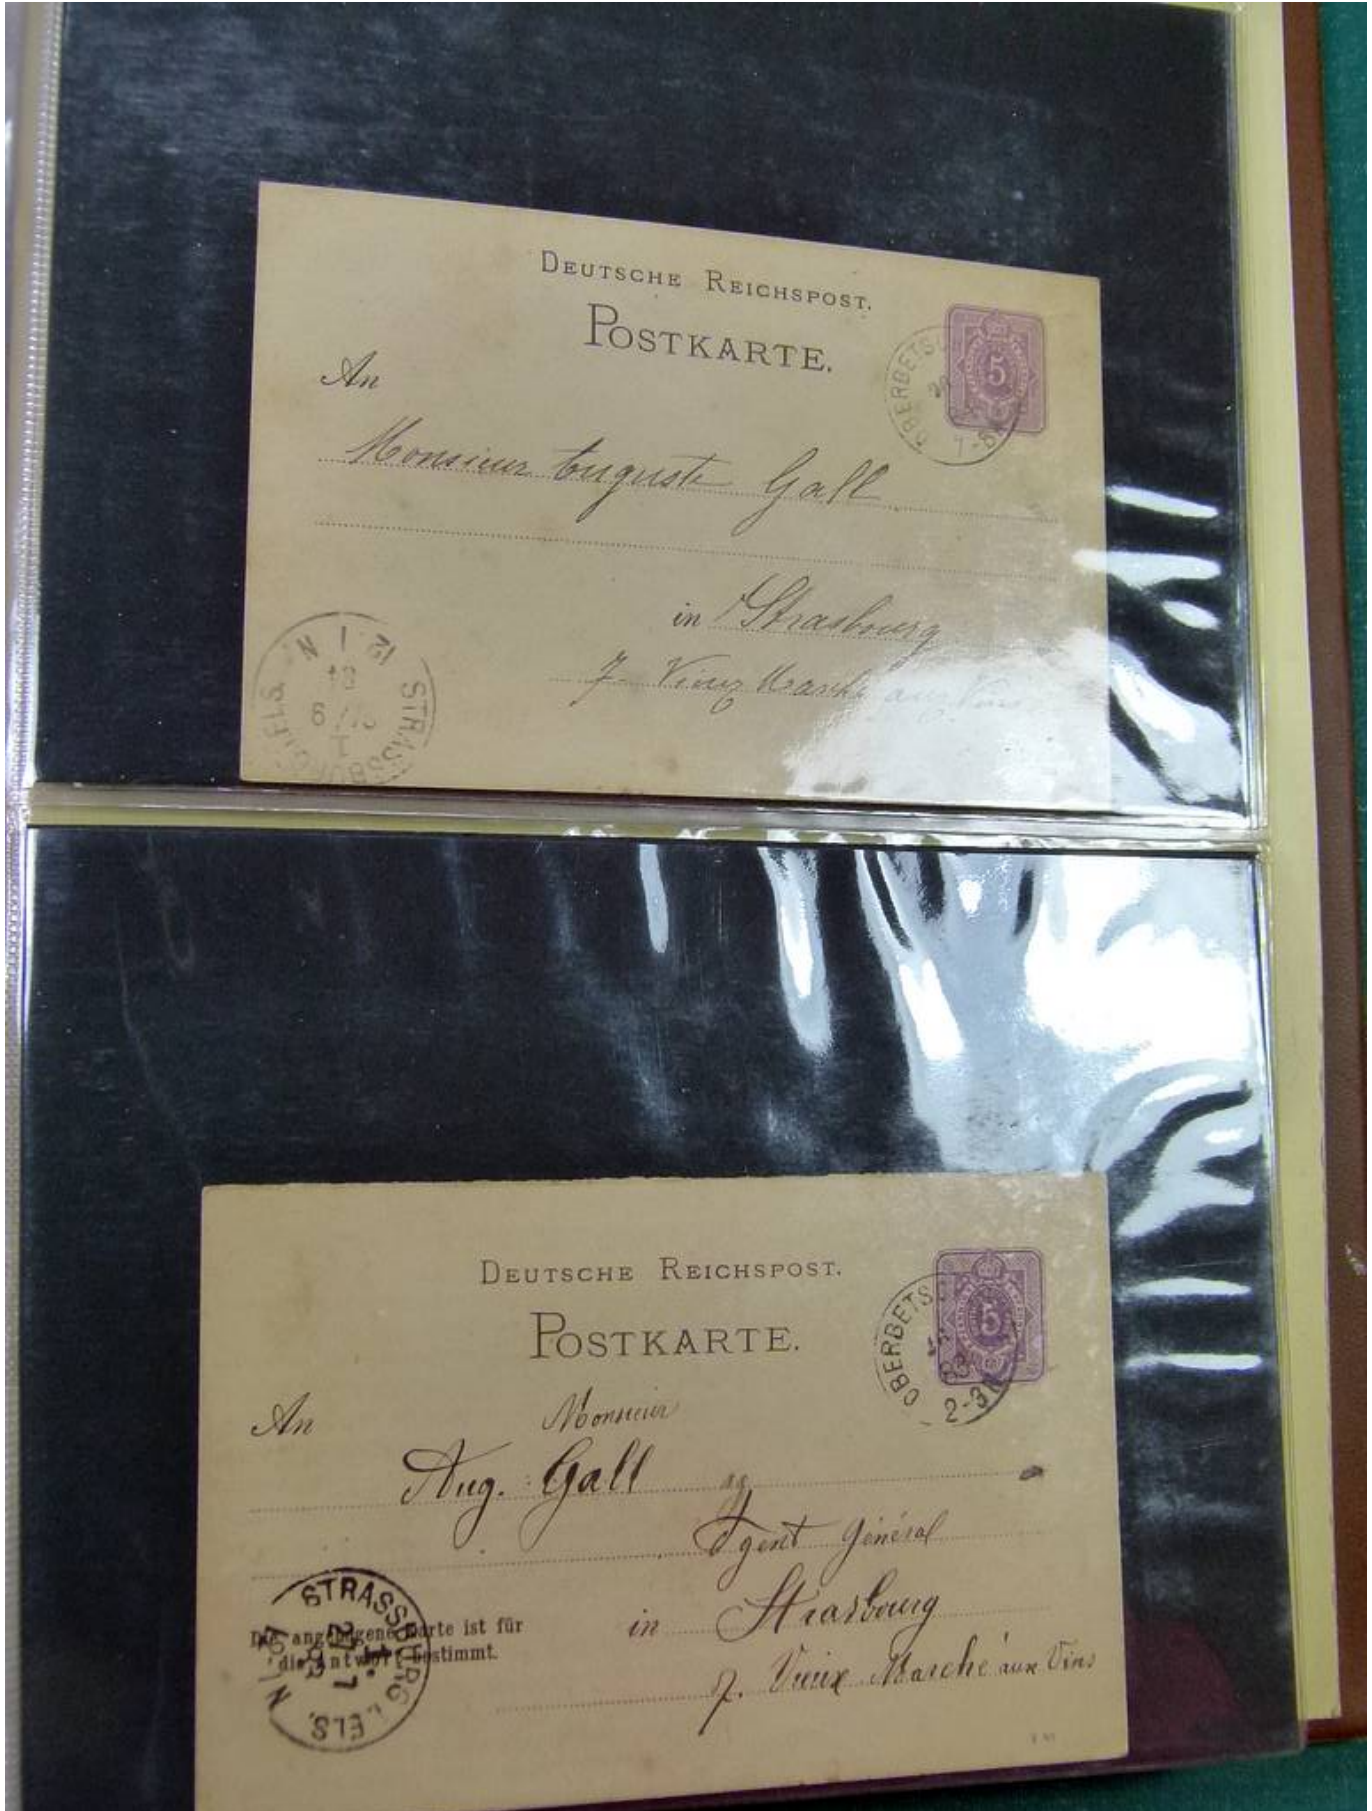 DEUTSCHE REICHSPOST.
POSTKARTE.
5
OBERBETS
7-8
An
Monsieur Auguste Gall
in Strasbourg
7. Vieux Marché aux Vins
STRASSBURG I. ELS.
12 1 N
DEUTSCHE REICHSPOST.
POSTKARTE.
5
OBERBETS
83
2-3N
An
Monsieur
Aug. Gall
Agent Général
in Strasbourg
7. Vieux Marché aux Vins
Die angebogene Karte ist für
die Antwort bestimmt.
STRASSBURG I. ELS.
27 7
83